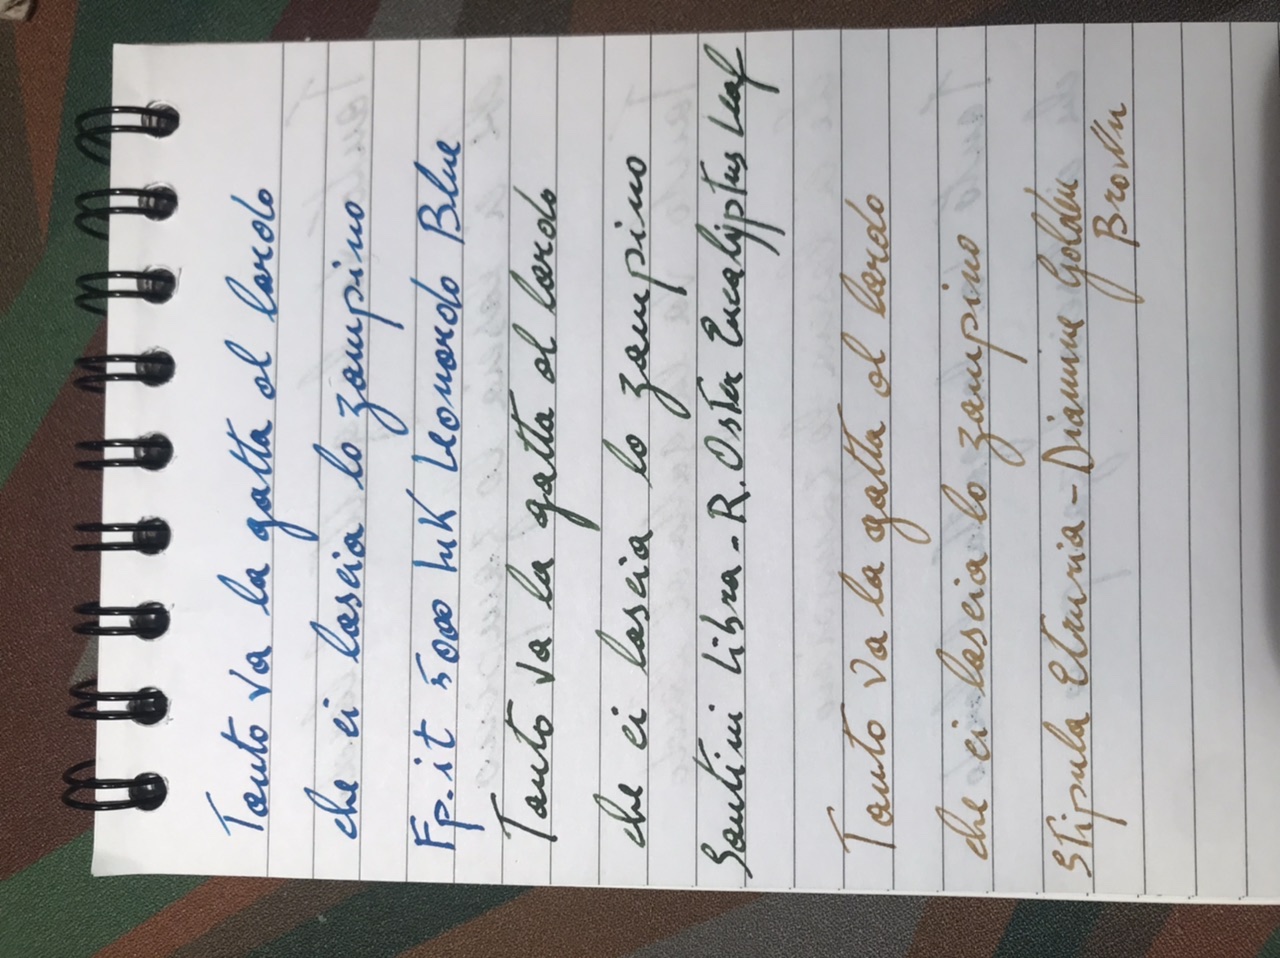 Tanto va la gatta al lardo
che ci lascia lo zampino
Fp.it 5000 Ink Leonardo Blue
Tanto va la gatta al lardo
che ci lascia lo zampino
Santini Libra - R. Oster Eucalyptus Leaf
Tanto va la gatta al lardo
che ci lascia lo zampino
Stipula Etruria - Diamine Golden
Brown